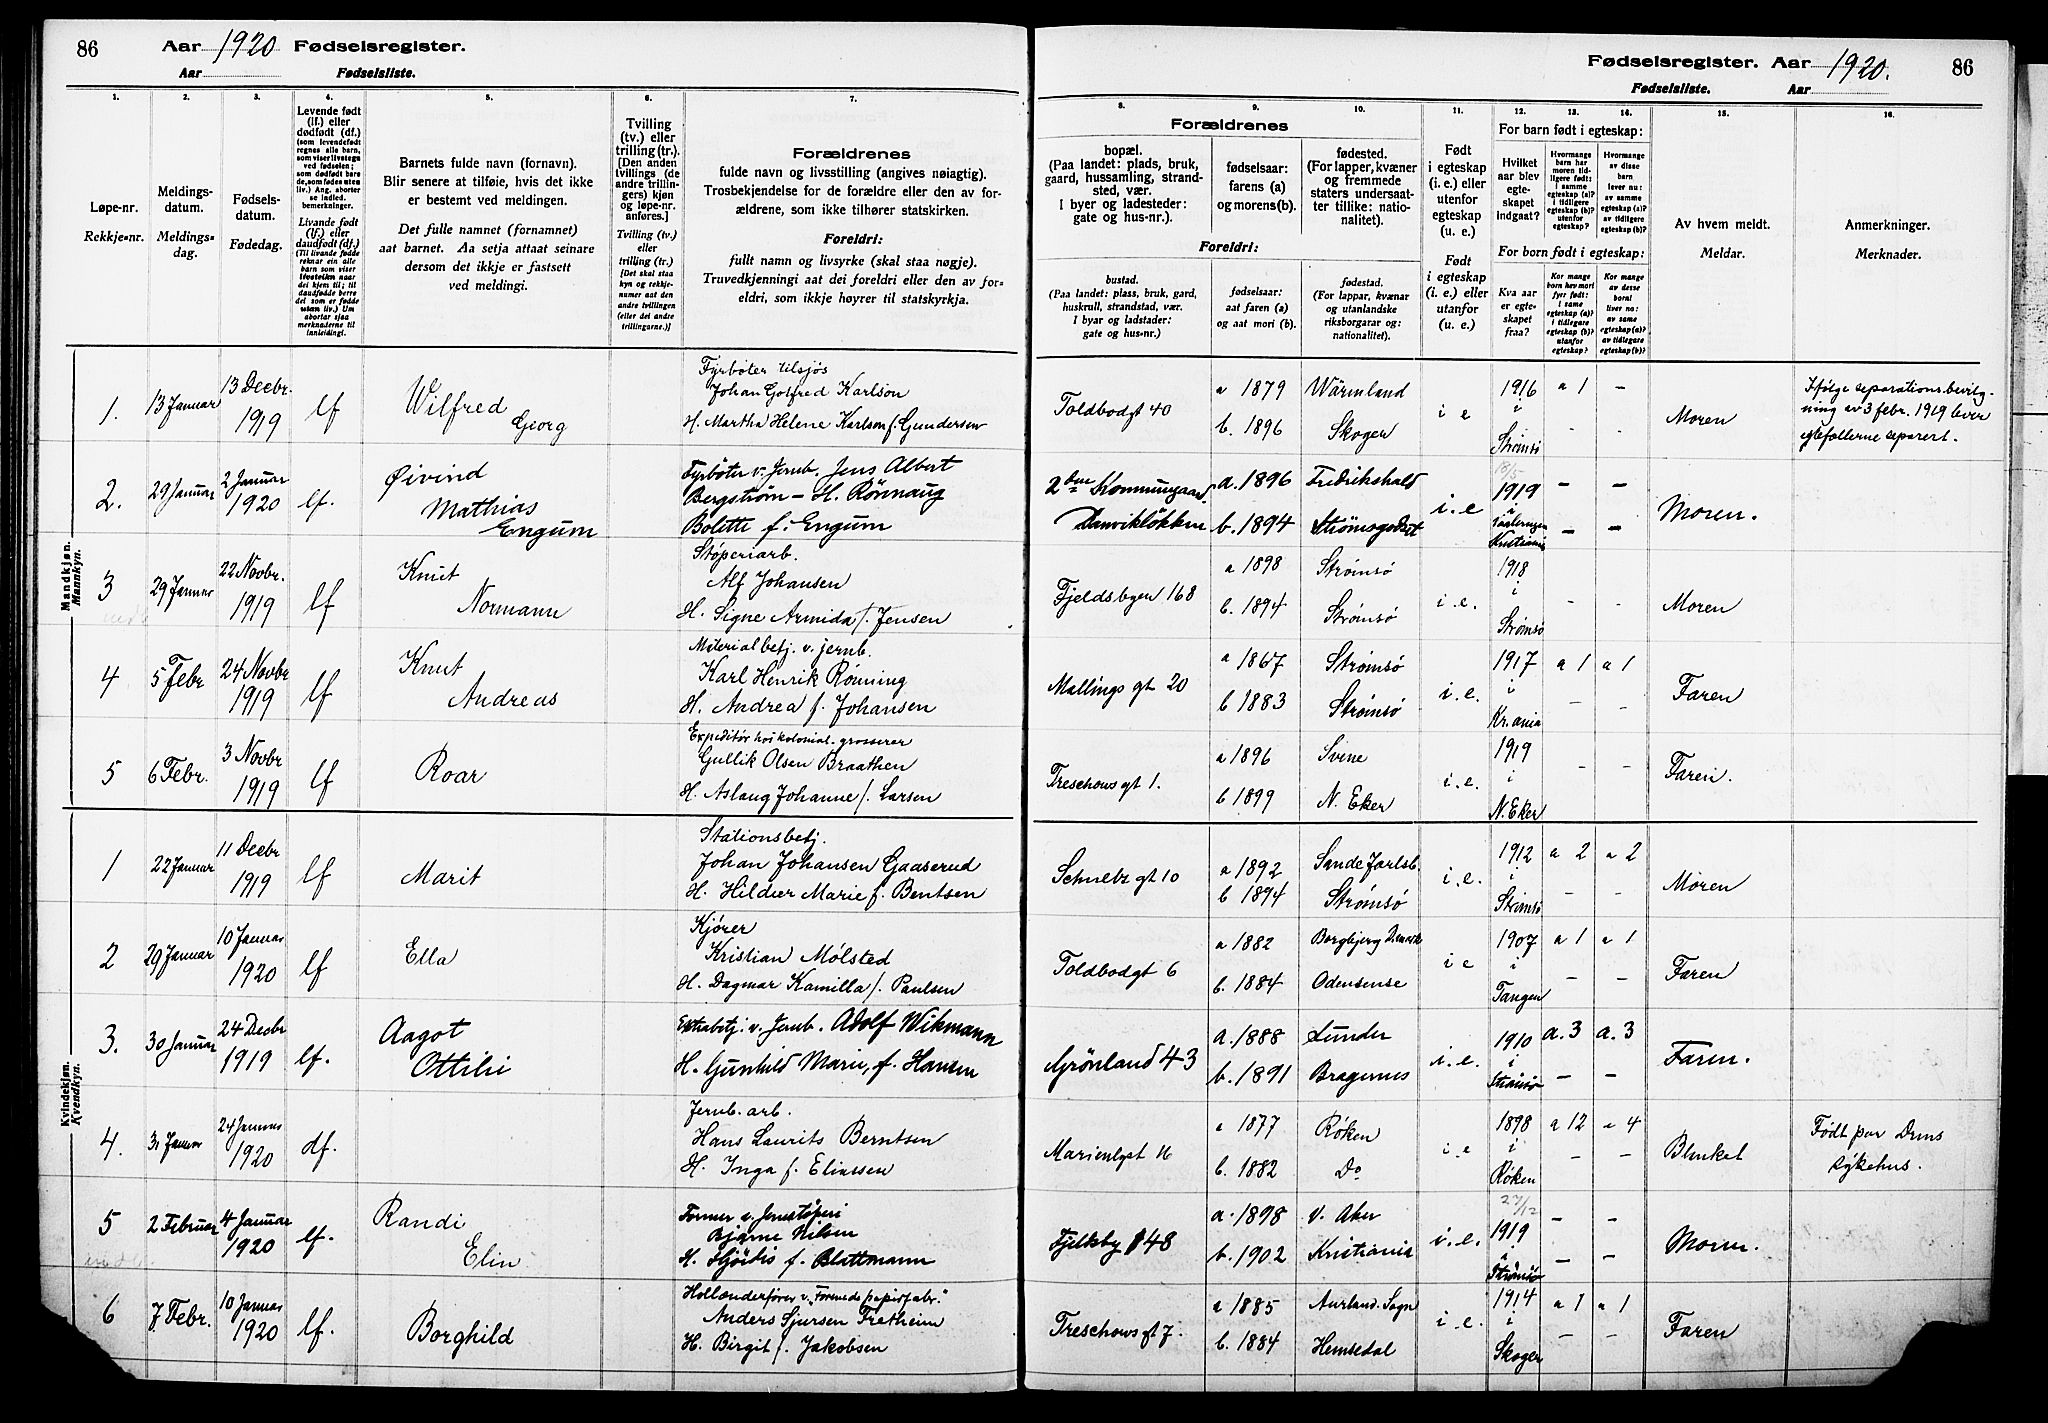 86 Aar 1920 Fødselsregister.
Aar Fødselsliste.
Fødselsregister. Aar 1920. 86
Fødselsliste. Aar
1.
Løpe-nr.
Rekkje-nr.
2.
Meldings-
datum.
Meldings-
dag.
3.
Fødsels-
datum.
Fødedag.
4.
Levende født
(lf.) eller
dødfødt (df.)
(som levendefødt
regnes alle barn,
som viser livstegn
ved fødselen;
som dødfødt bare
de, som fødes uten
liv.) Ang. aborter
se indled.
bemerkninger.
Livande født
(lf.) eller
daudfødt (df.)
(Til livande fødde
reknar ein alle
barn som viser
livsteikn naar
dei kjem til; til
daudfødde berre
dei som er fødde
utan liv.) Um
abortar sjaa
merknaderne til
innleidingi.
5.
Barnets fulde navn (fornavn).
Blir senere at tilføie, hvis det ikke
er bestemt ved meldingen.
Det fulle namnet (fornamnet)
aat barnet. Aa setja attaat seinare
dersom det ikkje er fastsett
ved meldingi.
6.
Tvilling
(tv.) eller
trilling (tr.).
[Den anden
tvillings (de
andre trillin-
gers) kjøn
og løpe-nr.
anføres.]
Tvilling (tv.)
eller
trilling (tr.)
[Det skal staa
kyn og rekkje-
numer aat den
andre tvillingen
(eller dei andre
trillingarne.)]
7.
Forældrenes
fulde navn og livsstilling (angives nøiagtig).
Trosbekjendelse for de forældre eller den av for-
ældrene, som ikke tilhører statskirken.
Foreldri:
fullt namn og livsyrke (skal staa nøgje).
Truvedkjenningi aat dei foreldri eller den av for-
eldri, som ikkje høyrer til statskyrkja.
Forældrenes
8.
bopæl.
(Paa landet: plads, bruk,
gaard, hussamling, strand-
sted, vær.
I byer og ladesteder:
gate og hus-nr.).
9.
fødselsaar:
farens (a)
og morens(b).
10.
fødested.
(For lapper, kvæner
og fremmede
staters undersaat-
ter tillike: natio-
nalitet).
Foreldri:
bustad.
(Paa landet: plass, bruk, gard,
huskrull, strandstad, vær.
I byar og ladstader:
gate og hus-nr.)
fødselsaar:
aat faren (a)
og aat mori (b).
fødestad.
(For lappar, kvænar
og utanlandske
riksborgarar og:
nationalitet).
11.
Født
i egteskap
(i. e.) eller
utenfor
egteskap
(u. e.)
Født
i egteskap
(i. e.) eller
utanfor
(u. e.)
For barn født i egteskap:
12.
Hvilket
aar blev
egte-
skapet
indgaat?
13.
Hvormange
barn har
moren tid-
ligere født:
i samme
egteskap (a)?
i tidligere
egteskap (b)?
utenfor
egteskap?
14.
Hvormange
av disse
barn
lever nu:
av samme
egteskap (a)?
av tidligere
egteskap (b)?
For born født i egteskap:
Kva aar
er egte-
skapet
fraa?
Kor mange
born hev mori
fyrr født:
i same
egteskap (a)?
i tidlegare
egteskap (b)?
utanfor
egteskap?
Kor mange
av desse
born
liver no:
av same
egteskap (a)?
av tidlegare
egteskap (b)?
15.
Av hvem meldt.
Meldar.
16.
Anmerkninger.
Merknader.
Mandkjøn.
Mannkyn.
1. 13 Januar 13 Decbr. 1919 lf Wilfred Georg
Fyrbøter tilsjøs
Johan Gotfred Karlson
H. Martha Helene Karlson f. Gundersen
Toldbodgt 40 a 1879 Wärmland b. 1896 Skoger i e 1916 i Strømsø a 1 - Moren
Ifølge separationsbevilg-
ning av 3 febr. 1919 lever
egtefollerne separert.
2. 29 Januar 2 Januar 1920 lf. Øivind Mathias Engum
Fyrbøter v. Jernb. Jens Albert
Bergstrøm – H. Rønnaug
Bolette f. Engum
2den Kommungaard Danvikløkken a. 1896 Fredrikshald b. 1894 Strømsgodset i. e 18/5 1919 Kristiania - - Moren.
3 29 Januar 22 Novbr. 1919 lf Knut Normann
Støperiarb.
Alf Johansen
H. Signe Armida f. Jensen
Fjeldsbyen 168 a 1898 Strømsø b. 1894 Strømsø i. e. 1918 i Strømsø - - Moren
4 5 Febr 24 Novbr 1919 lf Knut Andreas
Materialbetj. v. jernb.
Karl Henrik Rønning
H. Andrea f. Johansen
Mallings gt 20 a 1867 Strømsø b 1883 Strømsø i. e. 1917 i Kr.ania a 1 a 1 Faren
5 6 Febr. 3 Novbr 1919 lf Roar
Expeditør hos kolonial-grosserer
Gullik Olsen Braathen
H. Aslaug Johanne f. Larsen
Treschows gt 1. a 1896 Svene b 1899 N. Eker i. e. 1919 i N. Eker - - Faren.
Kvindekjøn.
Kvendkyn.
1 22 Januar 11 Decbr 1919 lf Marit
Stationsbetj.
Johan Johansen Gaaserud
H. Hildur Marie f. Bentsen
Schultz gt 10 a 1892 Sande Jarlsb. b 1894 Strømsø i. e. 1912 i Strømsø a 2 a 2 Moren
2 29 Januar 10 Januar 1920 lf Ella
Kjører
Kristian Mølsted
H. Dagmar Kamilla f. Paulsen
Toldbodgt 6 a 1882 Borgbjerg Danmark b. 1884 Odensense i e 1907 i Tangen a 1 a 1 Faren
3. 30 Januar 24 Decbr 1919 lf. Aagot Ottilie
Extrabetj. v. Jernb. Adolf Wikmann
H. Gunhild Marie, f. Hansen
Grønland 43 a. 1888 Lunder b. 1891 Bragernes i. e. 1910 i Strømsø a. 3 a. 3 Faren.
4. 31 Januar 24 Januar 1920 df.
Jernb. arb.
Hans Laurits Berntsen
H. Inga f. Eliassen
Marienlyst 16 a 1877 Røken b. 1882 Do i e 1898 i Røken a 12 a 4 Blanket
Født paa Drms
sykehus.
5 2 Februar 4 Januar 1920 lf. Randi Elin
Former v. Jernstøperi
Bjarne Nilsen
H. Hjördis f. Blattmann
Fjellsby 148 a. 1898 V. Aker b. 1902 Kristiania i. e. 27/12 1919 i Strømsø - - Moren.
6 7. Febr. 10 Januar 1920 lf. Borghild
Hollænderfører v. "Forenede papirfabr."
Anders Sjursen Fretheim
H. Birgit f. Jakobsen
Treschows gt 7. a 1885 Aurland. Sogn b. 1884 Hemsedal i. e. 1914 i Skoger a 1 a 1 Faren